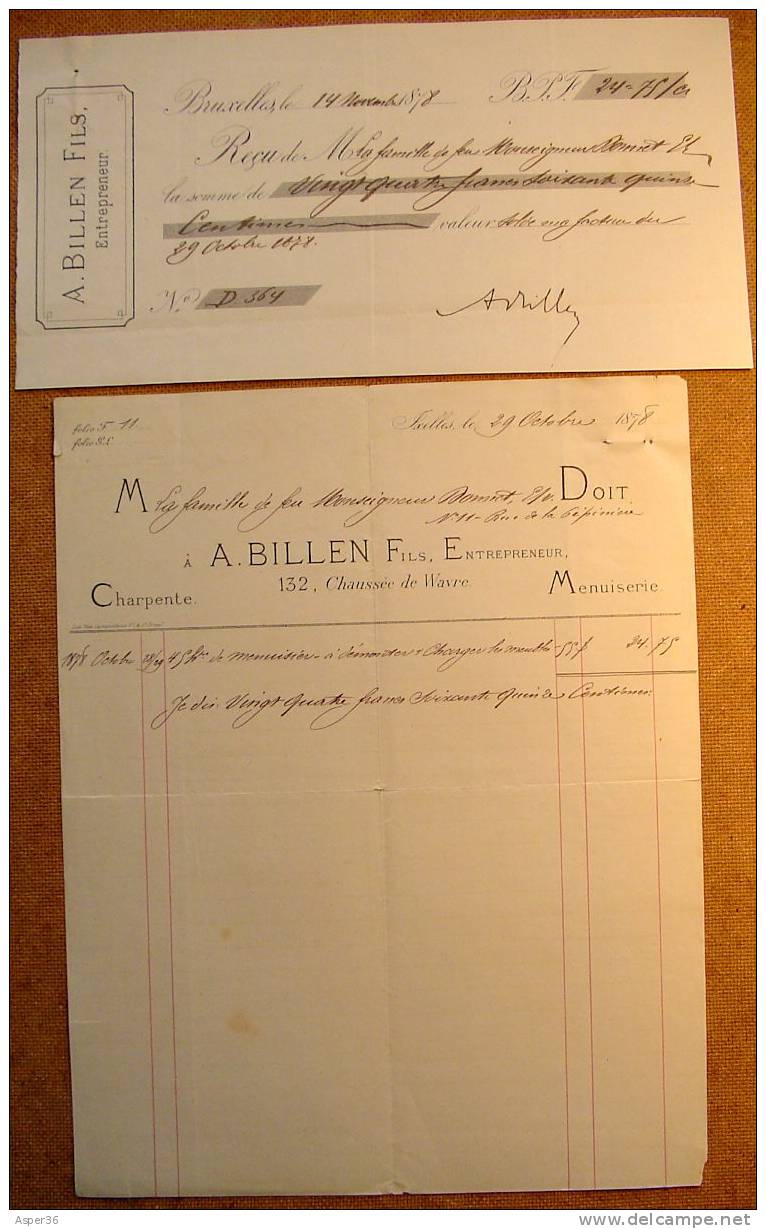 A. BILLEN FILS,
Entrepreneur.
Bruxelles, le 14 Novembre 1878 B.P.F. 24=75/c
Reçu de M La famille de feu Monseigneur Donnet
la somme de Vingt quatre francs soixante quinze
Centimes valeur solde ma facture du
29 Octobre 1878.
No D. 364
ABillen
folio F 11
folio
Ixelles, le 29 Octobre 1878
M La famille de feu Monseigneur Donnet, DOIT
No 11 - Rue de la Pépinière
À A. BILLEN FILS, ENTREPRENEUR,
132, Chaussée de Wavre.
Charpente. Menuiserie.
1878 Octobre 45 hres de menuisier à démonter & charger les meubles 55 24.75
Je dis Vingt quatre francs soixante quinze Centimes.
Asper36
delcampe.net